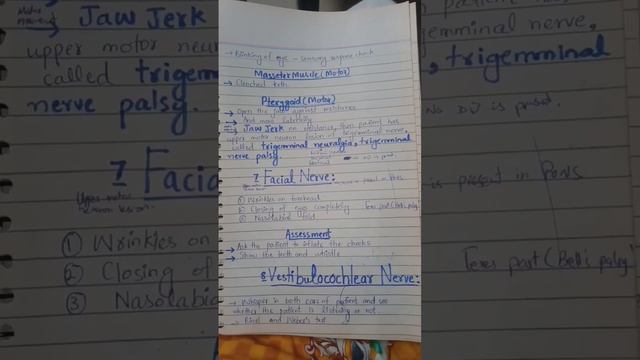 → Blinking of eye - sensory response check
Masseter Muscle (Motor)
→ Clenched teeth
Pterygoid (Motor)
→ Open the jaw against resistance
→ And move laterally
Jaw Jerk on resistance, then patient has
upper motor neuron lesion of trigeminal nerve,
called trigemminal neuralgia, trigemminal
nerve palsy.
7 Facial Nerve:
① Wrinkles on forehead
② Closing of eye completely
③ Nasolabial fold
Assessment
→ Ask the patient to inflate the cheeks
→ Show the teeth and whistle
8 Vestibulocochlear Nerve:
→ Whisper in both ears of patient and see
whether the patient is listening or not.
→ Rinel and Weber's test